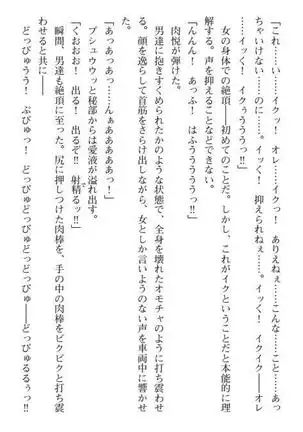 「これ……い、イクっ！　オレ……イクっ！　ありえねぇ……こんな……こと……あっ
ちゃいけない……のに……。イッく！　抑えられねぇ……。イッく！　イクイク――オレ
……イッくぅ！　イクぅぅうっ!!」
女の身体での絶頂――初めてのことだ。しかし、これがイクということだと本能的に理
解する。声を抑えることなどできない。
「んんん！　あっふ！　はふうううううっ!!」
肉悦が弾けた。
男達に抱きすくめられたかのような状態で、全身を壊れたオモチャのように打ち震わせ
る。顔を逸らして首筋をさらけ出しながら、女としか言いようのない声を車両中に響かせ
た。
「あっあっあっ……んぁああああっ！」
ブシュウウッと秘部からは愛液が溢れ出す。
「くおおお！　出る！　出るぞっ!!　射精るッ!!」
瞬間、男達も絶頂に至った。尻に押しつけた肉棒を、手の中の肉棒をビクビクと打ち震
わせると共に――
どっぴゅうう！　ぶぴゅっ！　どぴゅどっぴゅどっぴゅ――どっぴゅるるぅっ!!